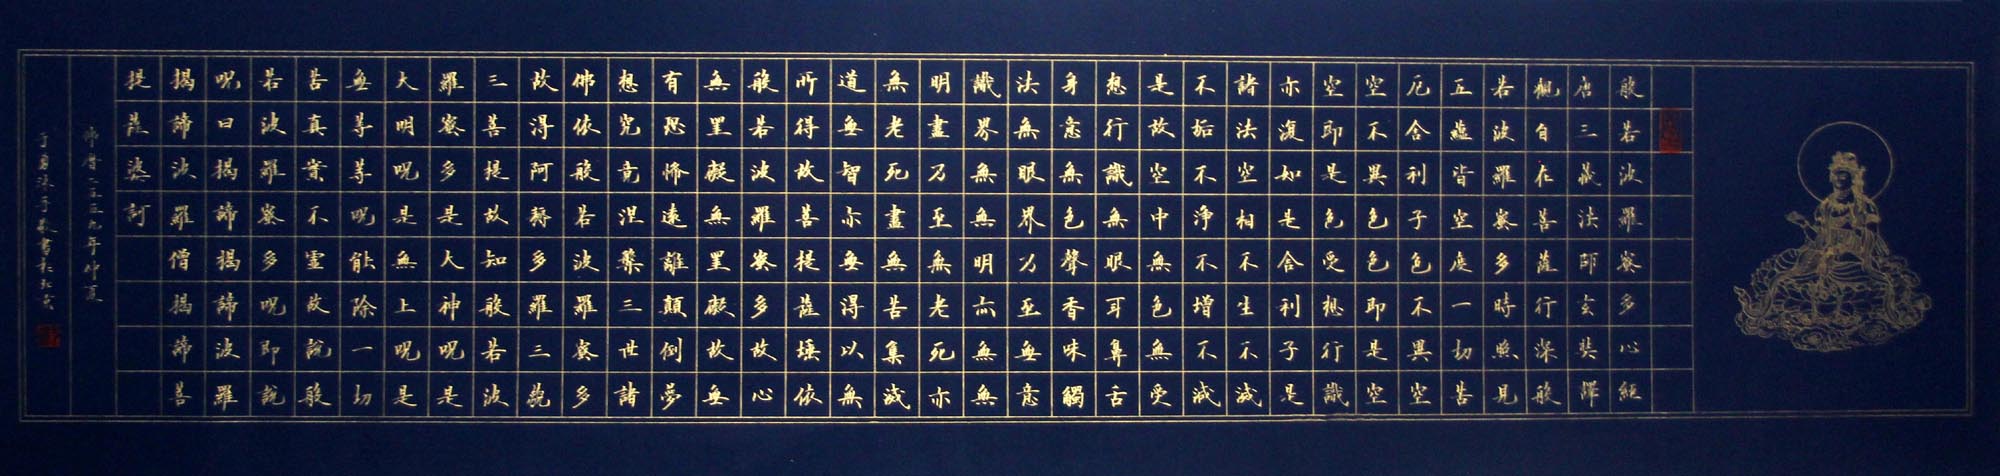 般若波羅蜜多心經
唐三藏法師玄奘譯
觀自在菩薩行深般
若波羅蜜多時照見
五蘊皆空度一切苦
厄舍利子色不異空
空不異色色即是空
空即是色受想行識
亦復如是舍利子是
諸法空相不生不滅
不垢不淨不增不減
是故空中無色無受
想行識無眼耳鼻舌
身意無色聲香味觸
法無眼界乃至無意
識界無無明亦無無
明盡乃至無老死亦
無老死盡無苦集滅
道無智亦無得以無
所得故菩提薩埵依
般若波羅蜜多故心
無罣礙無罣礙故無
有恐怖遠離顛倒夢
想究竟涅槃三世諸
佛依般若波羅蜜多
故得阿耨多羅三藐
三菩提故知般若波
羅蜜多是大神呪是
大明呪是無上呪是
無等等呪能除一切
苦真實不虛故說般
若波羅蜜多呪即說
呪曰揭諦揭諦波羅
揭諦波羅僧揭諦菩
提薩婆訶
佛曆二五五九年仲夏
于勇沐手敬書於北京